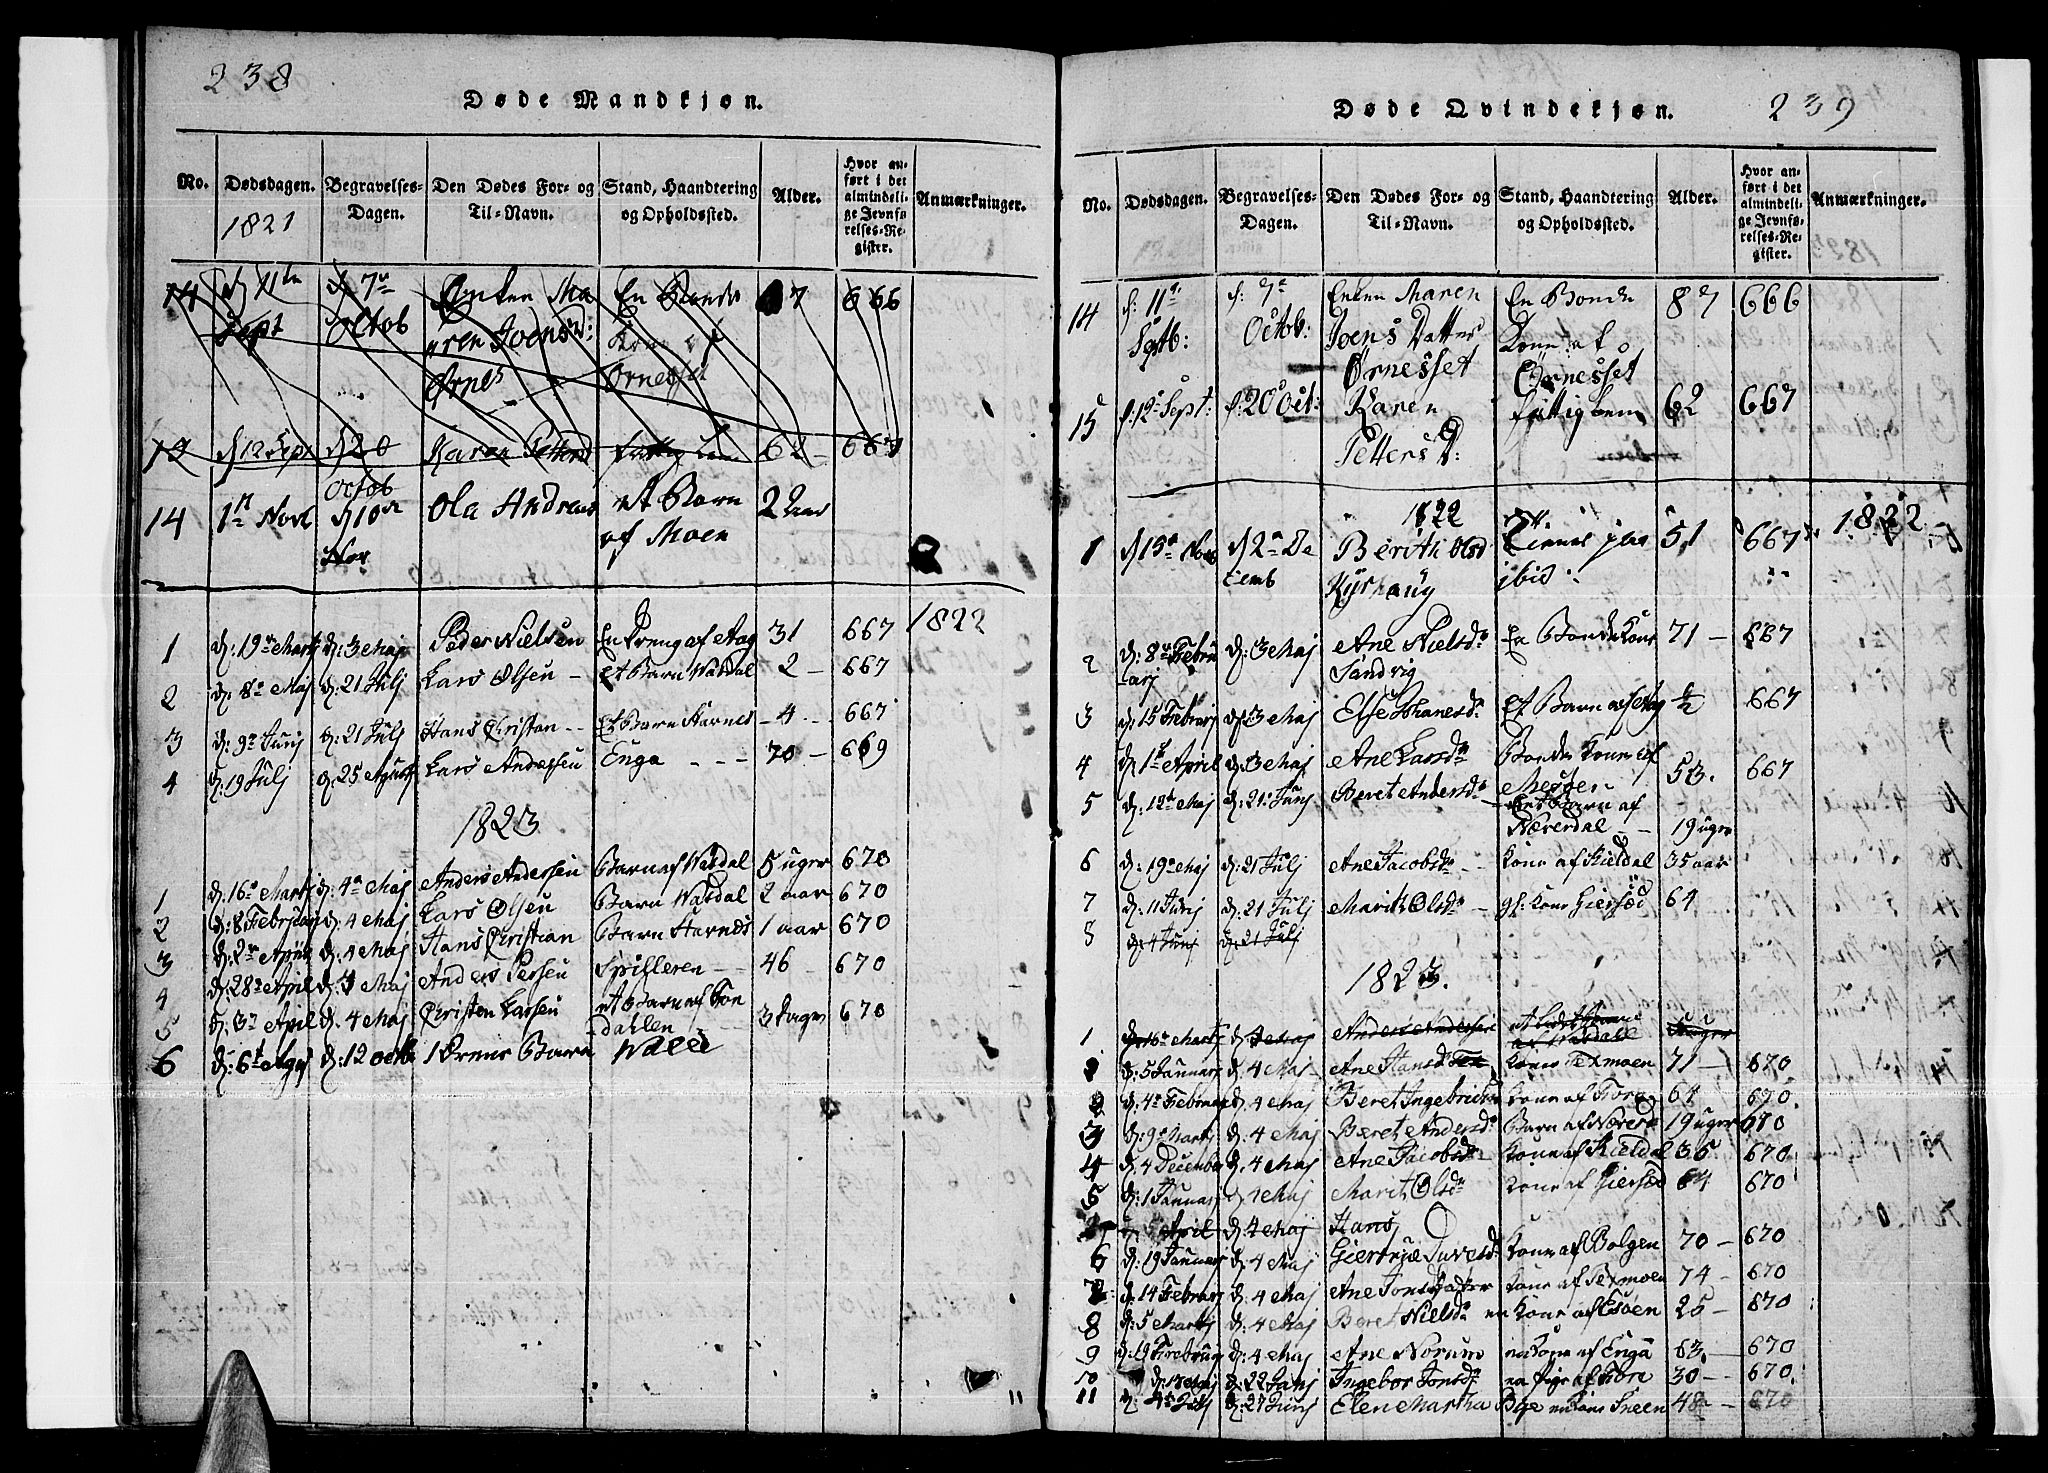 238
Døde Mandkjøn.
No. Dødsdagen. Begravelses-Dagen. Den Dødes For- og Til-Navn. Stand, Haandtering og Opholdssted. Alder. Hvor anført i det almindelige Jevnførelses-Register. Anmærkninger.
1821
14 d 11te Sept d 7de Octob Enken Maren Joensd: Ørnes En Bonde Kone af Ørnesset 87 666
d 12 Sept d 20 Octob Karen Pettersd fattig Lem 62 – 667
14 1ste Novb d 10de Nov Ola Andreas et Barn af Moen 2 Aar
1822
1 d: 19de Marti d: 3 Maj Peder Nielsen En Dreng af Aag 31 667
2 d: 8de Maj d: 21 Julj Lars Olsen – et Barn Watdal 2 – 667
3 d: 9de Junj d: 21 Julj Hans Christian – Et Barn Harnes – 4 – 667
4 d: 19 Julj d: 25 August Lars Andersen Enga - - - 70 – 669
1823
1 d: 16de Martj d: 4de Maj Anders Andersen Barn af Watdal 5 uger 670
2 d: 8 Februarj d: 4 Maj Lars Olsen Barn Watdal 2 aar 670
3 d: 2de April d: 4 Maj Hans Christian Barn Harnes 1 aar 670
4 d: 28de April d: 4 Maj Anders Persen Spilleren – 46 – 670
5 d: 3de April d: 4 Maj Christen Larsen et Barn af Tondahlen 3 dager 670
6 d: 6te d: 12 octb Barn
239
Døde Qvindekjøn.
No. Dødsdagen. Begravelses-Dagen. Den Dødes For- og Til-Navn. Stand, Haandtering og Opholdssted. Alder. Hvor anført i det almindelige Jevnførelses-Register. Anmærkninger.
14 d: 11te Septb: d: 7de Octob: Enken Maren Joens Datter Ørnesset En Bonde Kone af Ørnesset 87 666
15 d: 12te Sept: d: 20 Oct: Karen Petters D: fattig Lem 62 667
1822 1822
1 d 15de Nov d 2de Decemb Berith Olsd 51 667
2 d: 8de Februarj d: 3 Maj Ane Nielsdr Sandvig En Bonde Kone 71 – 667
3 d: 15 Februarj d: 3 Maj Else Johanesdr Et Barn af Aag 1/2 667
4 d: 1ste April d: 3 Maj Ane Larsdr Bonde Kone af 53. 667
5 d: 12te Maj d: 21: Junj Beret Andersdr Et Barn af Nærerdal – 19 uger
6 d: 19de Maj d: 21 Julj Ane Jacobsdr – Kone af Kieldal 35 aar
7 d: 11 Junj d: 21 Julj Marit Olsdr – gl: Kone Giersød 64
5 d: 4 Junj d: 21 Julj
1823.
1 d: 16de Martj d: 4 Maj Anders Andersen uger
d: 5 Januarj d: 4 Maj Ane Hansd Kone Texmoen 71 – 670
2 d: 4de Februarj d: 4 Maj Beret Ingebricktsd Kone af 64 670.
3 d: 9de Martj d: 4 Maj Beret Andersdr Barn af Nærerd 19 uger 670
4 d: 4 December d: 4 Maj Ane Jacobsdr Kone af Kieldal 35 670
5 d: 1 Januarj d: 4 Maj Marit Olsdr Kone af Giersød 64 670
d: 5 April d: 4 Maj Hans
6 d: 19 Januarj d: 4 Maj Giertrue Kone af Bolgen 70 – 670
7 d: 14 Februarj d: 4 Maj Ane Jonsdatter Kone af Texmoen 74 – 670
8 d: 5 Martj d: 4 Maj Beret Nielsdr en Kone af 25 – 670
9 d: 19 Februarj d: 4 Maj Ane Norum en Kone af Enga 63. – 670
10 d: 22 Junj Ingebor Jonsdr en Pige af 30 – 670
11 d: 4de Julj d: 27 Junj Elen Martha Bye en Kone Sneen 48 670